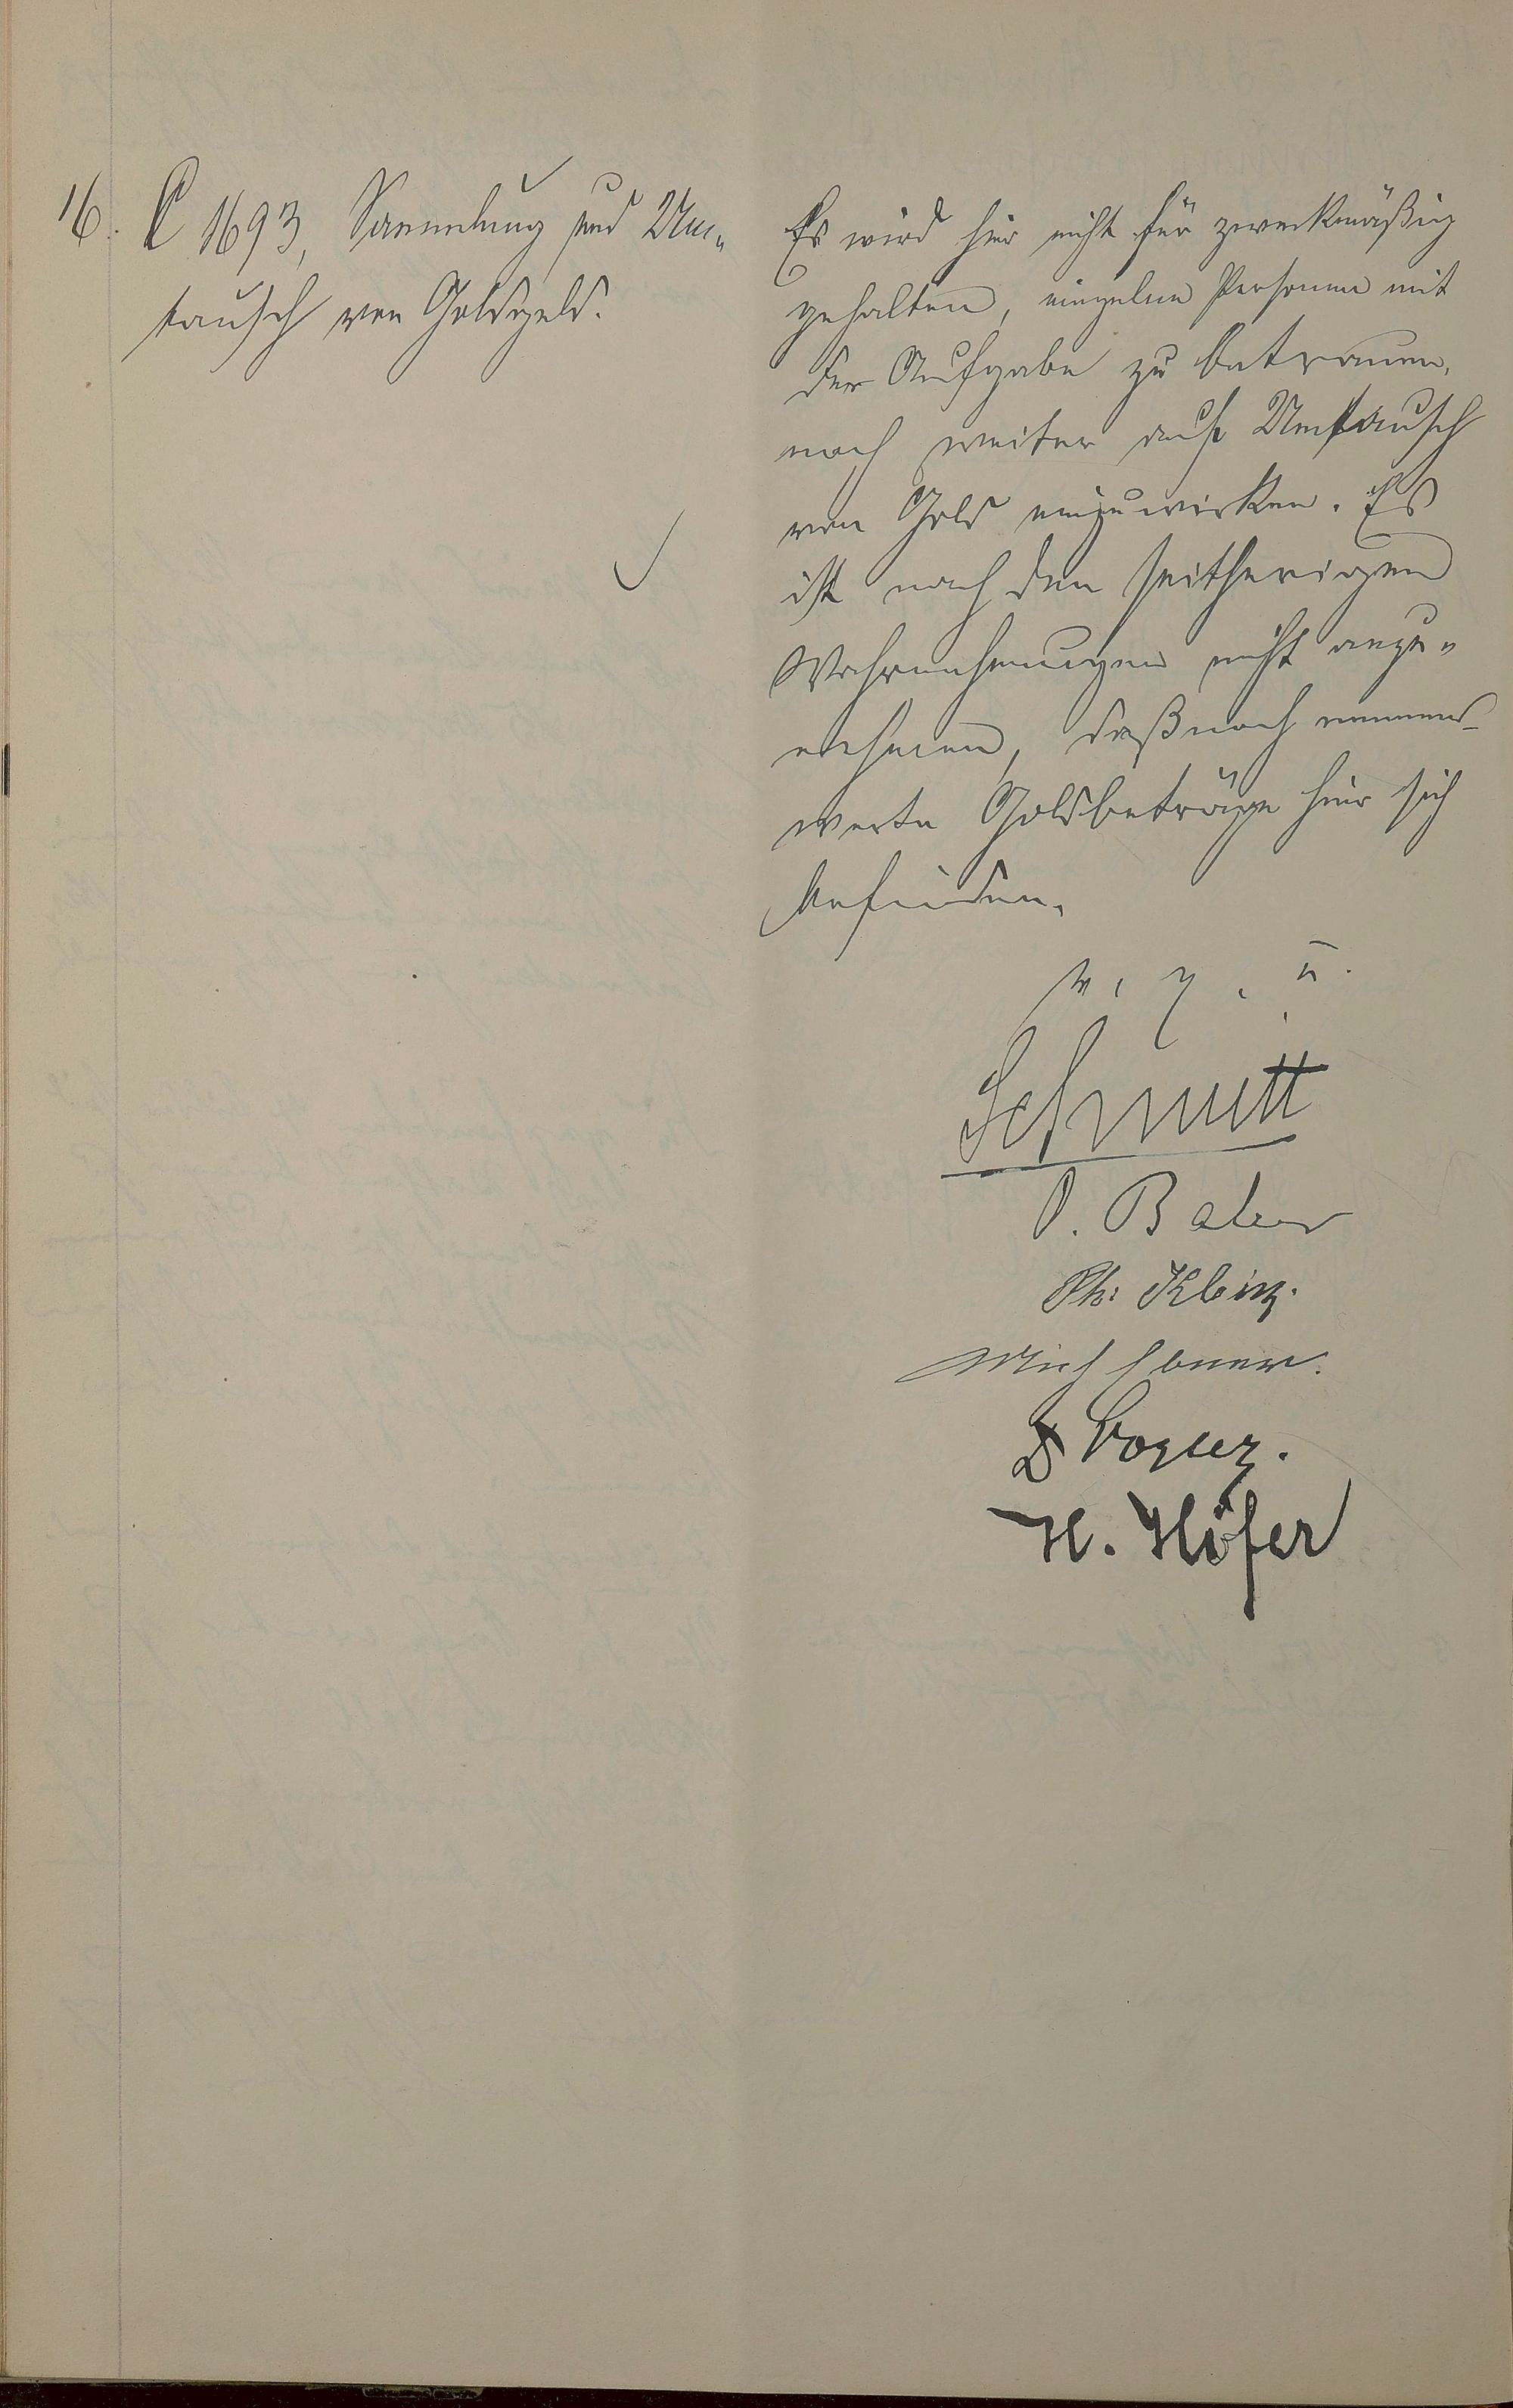 16. C 1693, Sammlung und Um-
tausch von Goldgeld.
Es wird hier nicht für zweckmäßig
gehalten, einzelne Personen mit
der Aufgabe zu betrauen,
noch weiter auf Umtausch
von Gold einzuwirken. Es
ist nach den seitherigen
Wahrnehmungen nicht anzu-
nehmen, daß noch nennens-
werte Goldbeträge hier sich
befinden.
v. g. u.
Schmitt
Ph. Kling.
H. Höfer